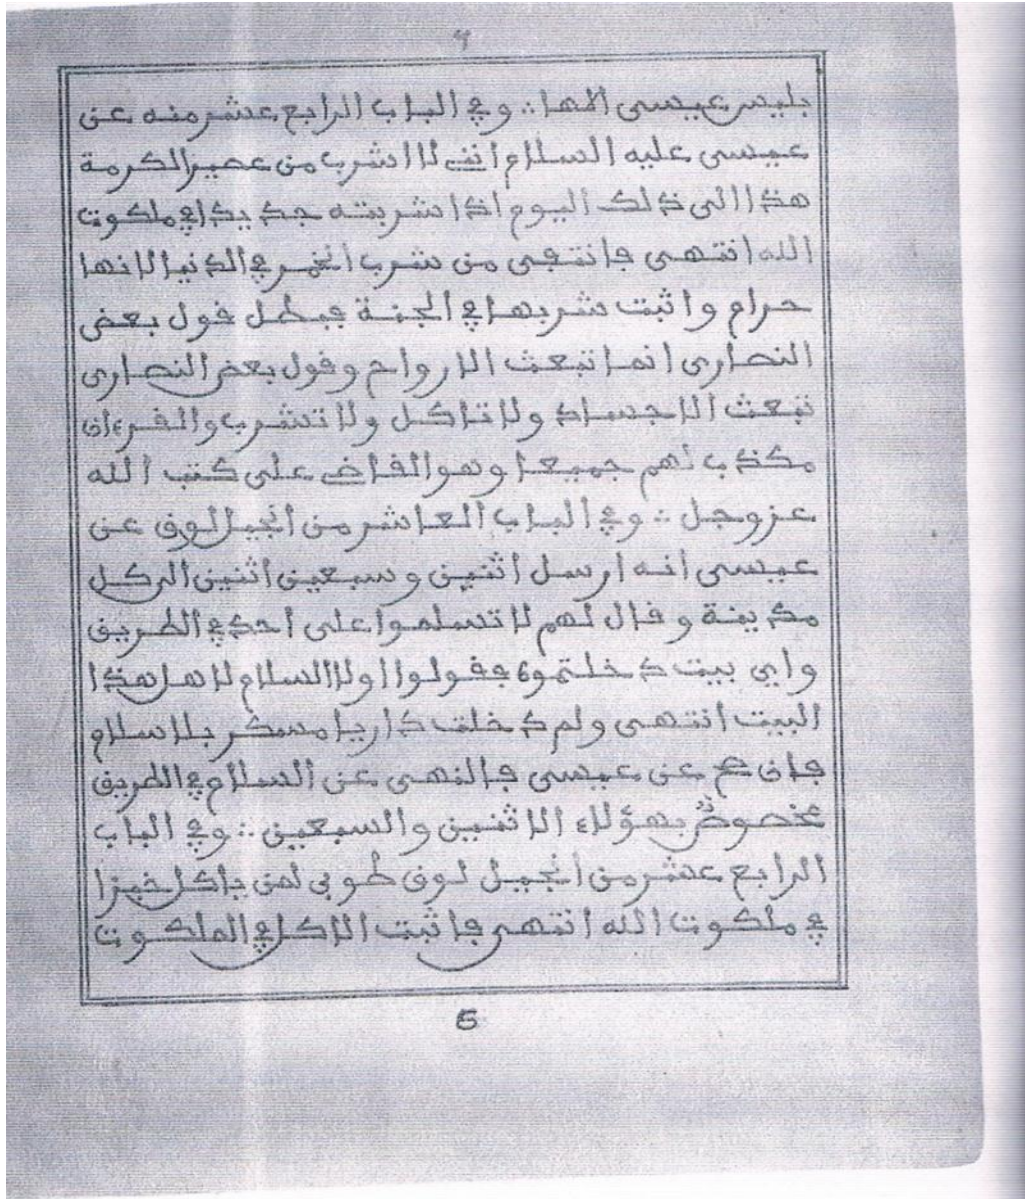 ٩
بليس عيسى الاها ∴ وفي الباب الرابع عشر منه عن
عيسى عليه السلام انني لا اشرب من عصير الكرمة
هذا الى ذلك اليوم اذا شربته جديدا في ملكوت
الله انتهى فانتفى من شرب الخمر في الدنيا لانها
حرام واثبت شربها في الجنة فبطل قول بعض
النصارى انما تبعث الارواح وقول بعض النصارى
تبعث الاجساد ولا تاكل ولا تشرب والقرءان
مكذب لهم جميعا وهو القاضي على كتب الله
عز وجل ∴ وفي الباب العاشر من انجيل لوق عن
عيسى انه ارسل اثنين وسبعين اثنين الى كل
مدينة وقال لهم لا تسلموا على احد في الطريق
واي بيت دخلتموه فقولوا اولا السلام لاهل هذا
البيت انتهى ولم دخلت داريا مسكر بلا سلام
فان صح عن عيسى فالنهى عن السلام في الطريق
مخصوص بهؤلاء الاثنين والسبعين ∴ وفي الباب
الرابع عشر من انجيل لوق طوبى لمن ياكل خبزا
في ملكوت الله انتهى فاثبت الاكل في الملكوت
5